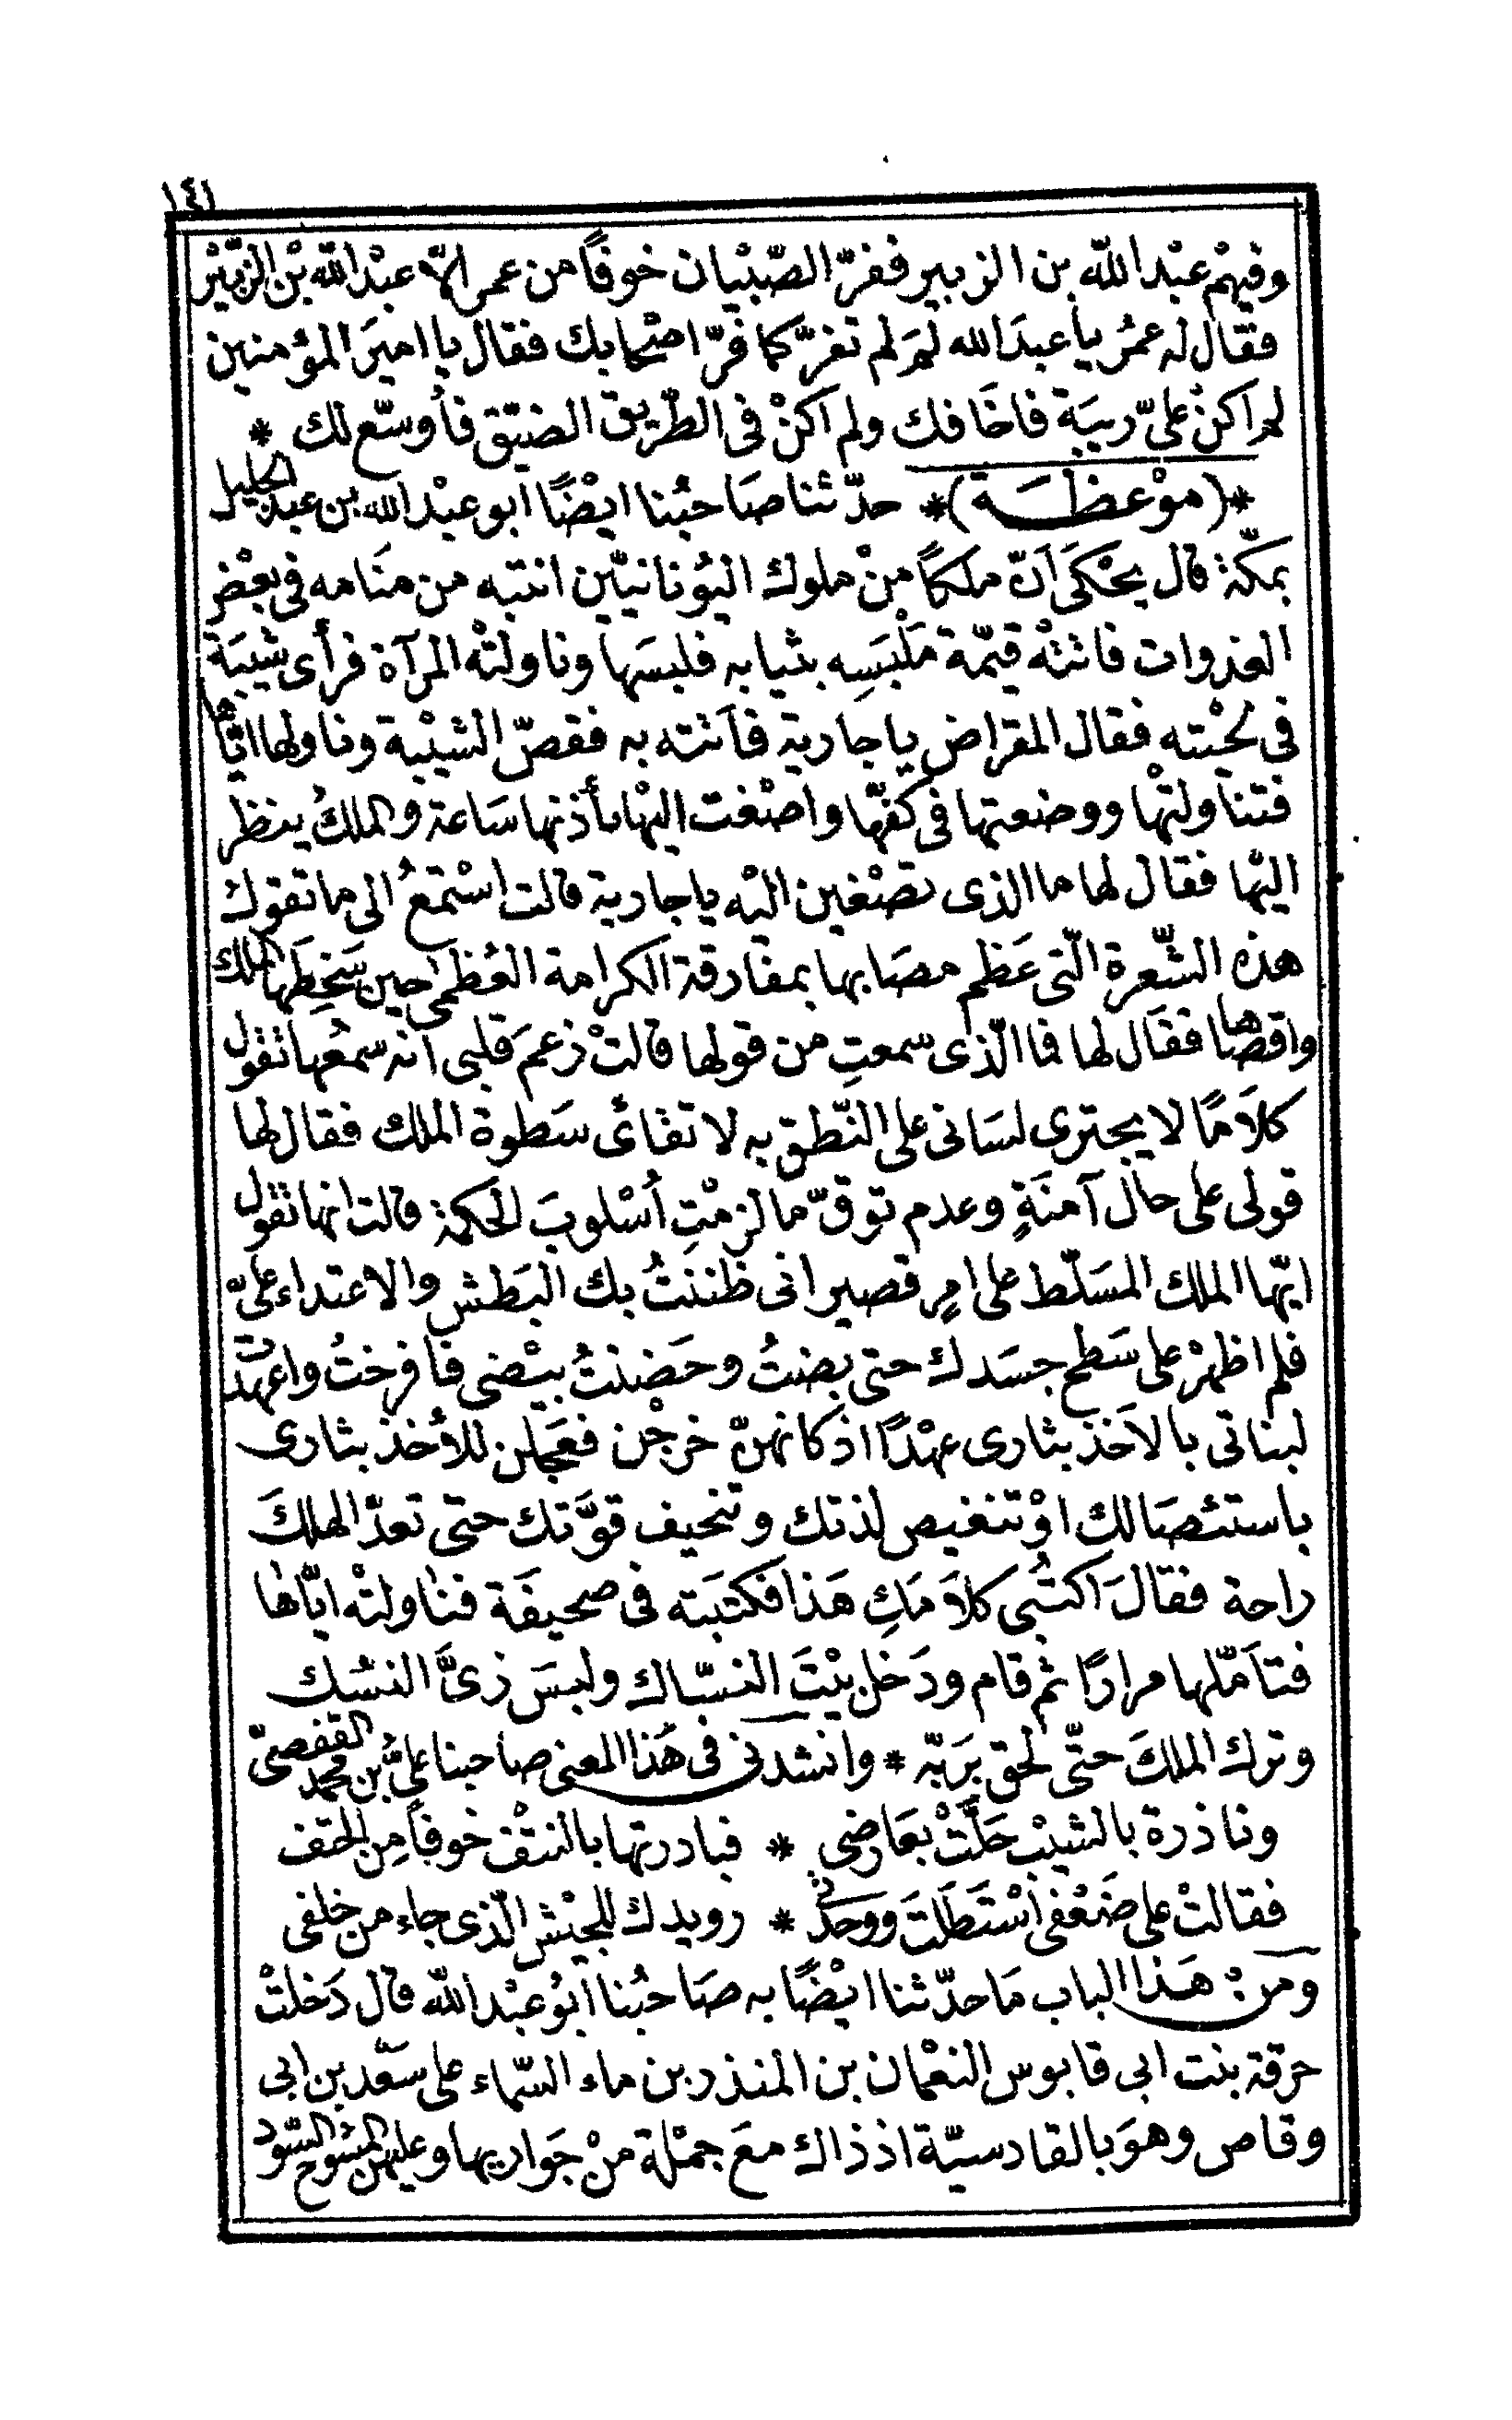 ١٤١
وفيهْم عبْد اللّه بن الزبير ففرّ الصّبْيان خوفًا من عمر الّا عبْد اللّه بْن الزّبيْر
فقال له عمُر يا عبدَ الله لمَ لم تفرّ كما فرّ اصْحابك فقال يا اميرَ المؤمنين
لم اكنْ علىّ ريبَة فاخَافك ولم اكنْ فى الطّريق الضيّق فأوسّع لك *
*(موْعظَة)* حدّثنا صَاحبُنا ايْضًا ابو عبْد الله بن عبد الجليل
بمكّة قال يحْكَى اَنّ ملكًا منْ ملوك اليُونانيّين انتبه من منَامه فى بعْض
الغدوات فاتتْه قيّمة مَلْبَسِه بثيابه فلبسَها وناولتْه المرآة فرأى شيْبَة
فى لحْيته فقال المقراض يا جارية فأتته به فقصّ الشيْبة وناولها ايّاها
فتناولتْها ووضعتها فى كفّها واصْغت اليْها بأذنها سَاعة والملكُ ينظر
اليْها فقال لها ما الذى تصْغين اليْه يا جارية قالت اسْتمعُ الى ما تقوله
هذه الشّعرة الّتى عَظم مصَابها بمفارقة الكرامة العُظمى حين سَخِطَها الملك
واقصَاها فقَال لها فما الّذى سمعتِ من قولها قالتْ زعمَ قلبى انه سمعُها تقول
كلاَمًا لا يجترى لسَانى على النّطق به لاتقائى سَطوة الملك فقال لها
قولى على حال آمنَةٍ وعدم توقّ ما لزمْتِ اُسْلوبَ الحكمة قالت انها تقول
ايّها الملك المسَلّط على امٍر قصير انى ظننتُ بك البَطش والاعتداء علىّ
فلم اظهرْ على سَطح جسَدك حتى بضتُ وحَضنتُ بيْضى فافرختُ واعهدْت
لبناتى بالاَخذ بثارى عهْدًا اذ كانهنّ خرجْن فعَجلن للاُخذ بثارى
باستئصَالك اوْ تنغيص لذتك وتنحيف قوَّتك حتى تعدّ الهلكَ
راحة فقالَ اكتُبى كلاَمَكِ هَذا فكتبَته فى صحيفَة فناولتْه ايّاها
فتأمّلها مرارًا ثم قام ودَخل بيْتَ النسّاك ولبسَ زىَّ النسُك
وترك الملكَ حتّى لحق برَبّه * وانشدنى فى هَذا المعنى صاحبنا علىُّ بن محمد القفصىّ
وناذرة بالشيْب حَلَّتْ بعَارضى * فبادرتها بالنتْف خوفًا مِن الحتف
فقالتْ على ضَعْفى اسْتَطَلتَ ووحدتى * رويدك للجيْش الّذى جاء من خلفى
ومن هَذا الباب مَا حدّثنا ايْضًا به صَاحبُنا ابُو عبْد اللّه قال دَخلتْ
حرقة بنت ابى قابوس النعْمان بن المنذر بن ماء السّماء على سَعْد بن ابى
وقاص وهوَ بالقادسيّة اذ ذاك معَ جمْلة منْ جَواريها وعليهن المسُوح السّود